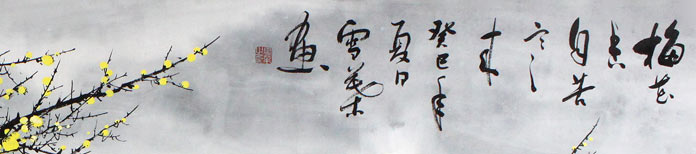 梅花
香
自苦
寒
来
癸巳年
夏日
雪
画